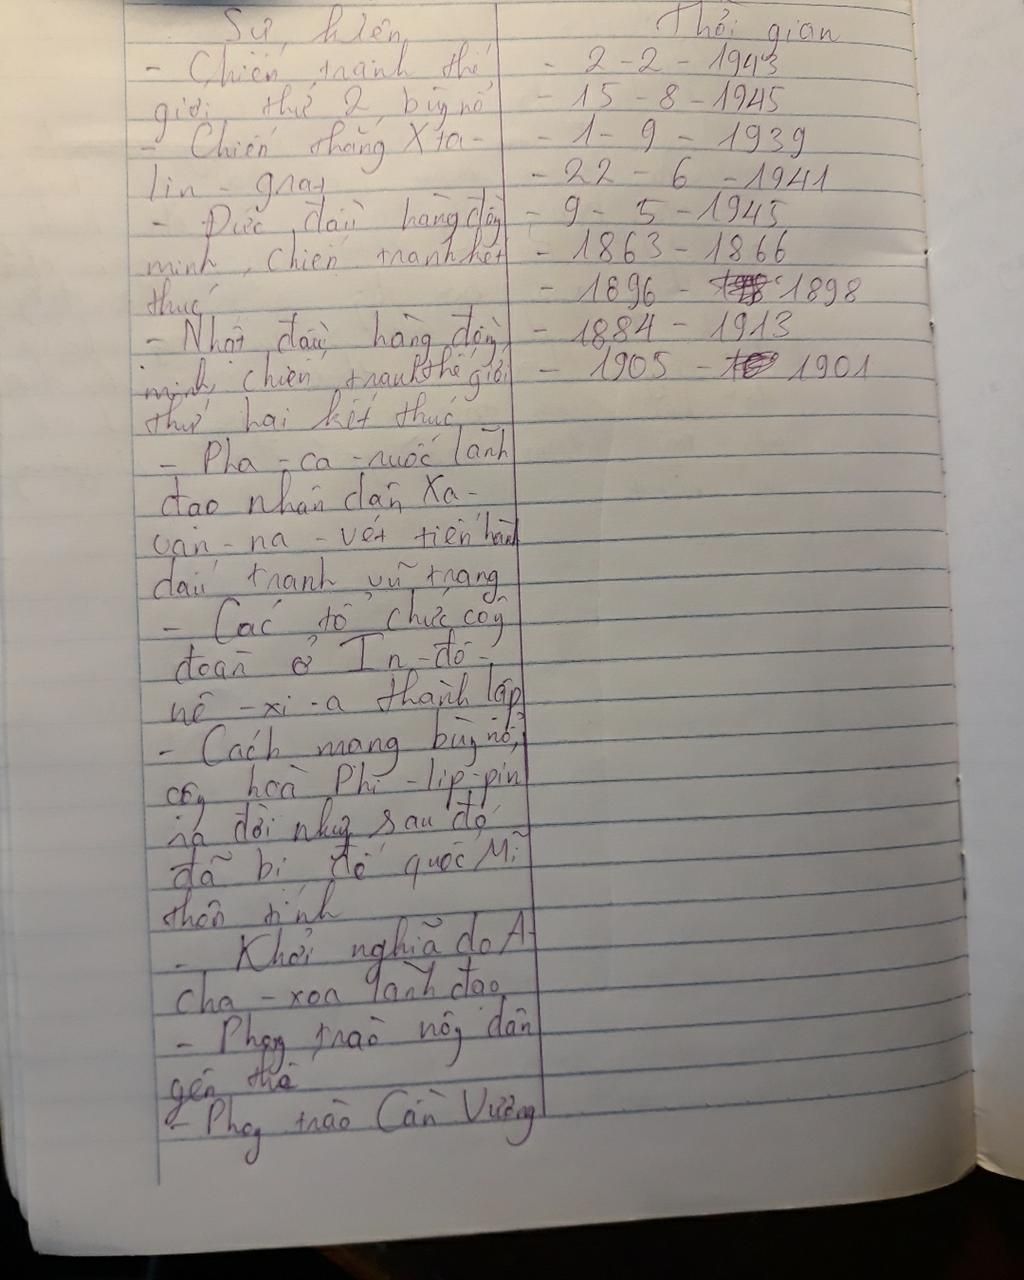 Sự kiện
- Chiến tranh thế
giới thứ 2 bùng nổ
- Chiến thắng Xta-
lin - grat
- Đức đầu hàng đồng
minh, chiến tranh kết
thúc
- Nhật đầu hàng đồng
minh, chiến tranh thế giới
thứ hai kết thúc
- Pha - ca - đuốc lãnh
đạo nhân dân Xa-
van - na - vét tiến hành
đấu tranh vũ trang
- Các tổ chức công
đoàn ở In - đô -
nê - xi - a thành lập
- Cách mạng bùng nổ,
cộng hoà Phi - lip - pin
ra đời nhưng sau đó
đã bị đế quốc Mĩ
thôn tính
- Khởi nghĩa do A-
cha - xoa lãnh đạo
- Phong trào nông dân
yên thế
- Phong trào Cần Vương
Thời gian
- 2 - 2 - 1943
- 15 - 8 - 1945
- 1 - 9 - 1939
- 22 - 6 - 1941
- 9 - 5 - 1945
- 1863 - 1866
- 1896 - 1898
- 1884 - 1913
- 1905 - 1901